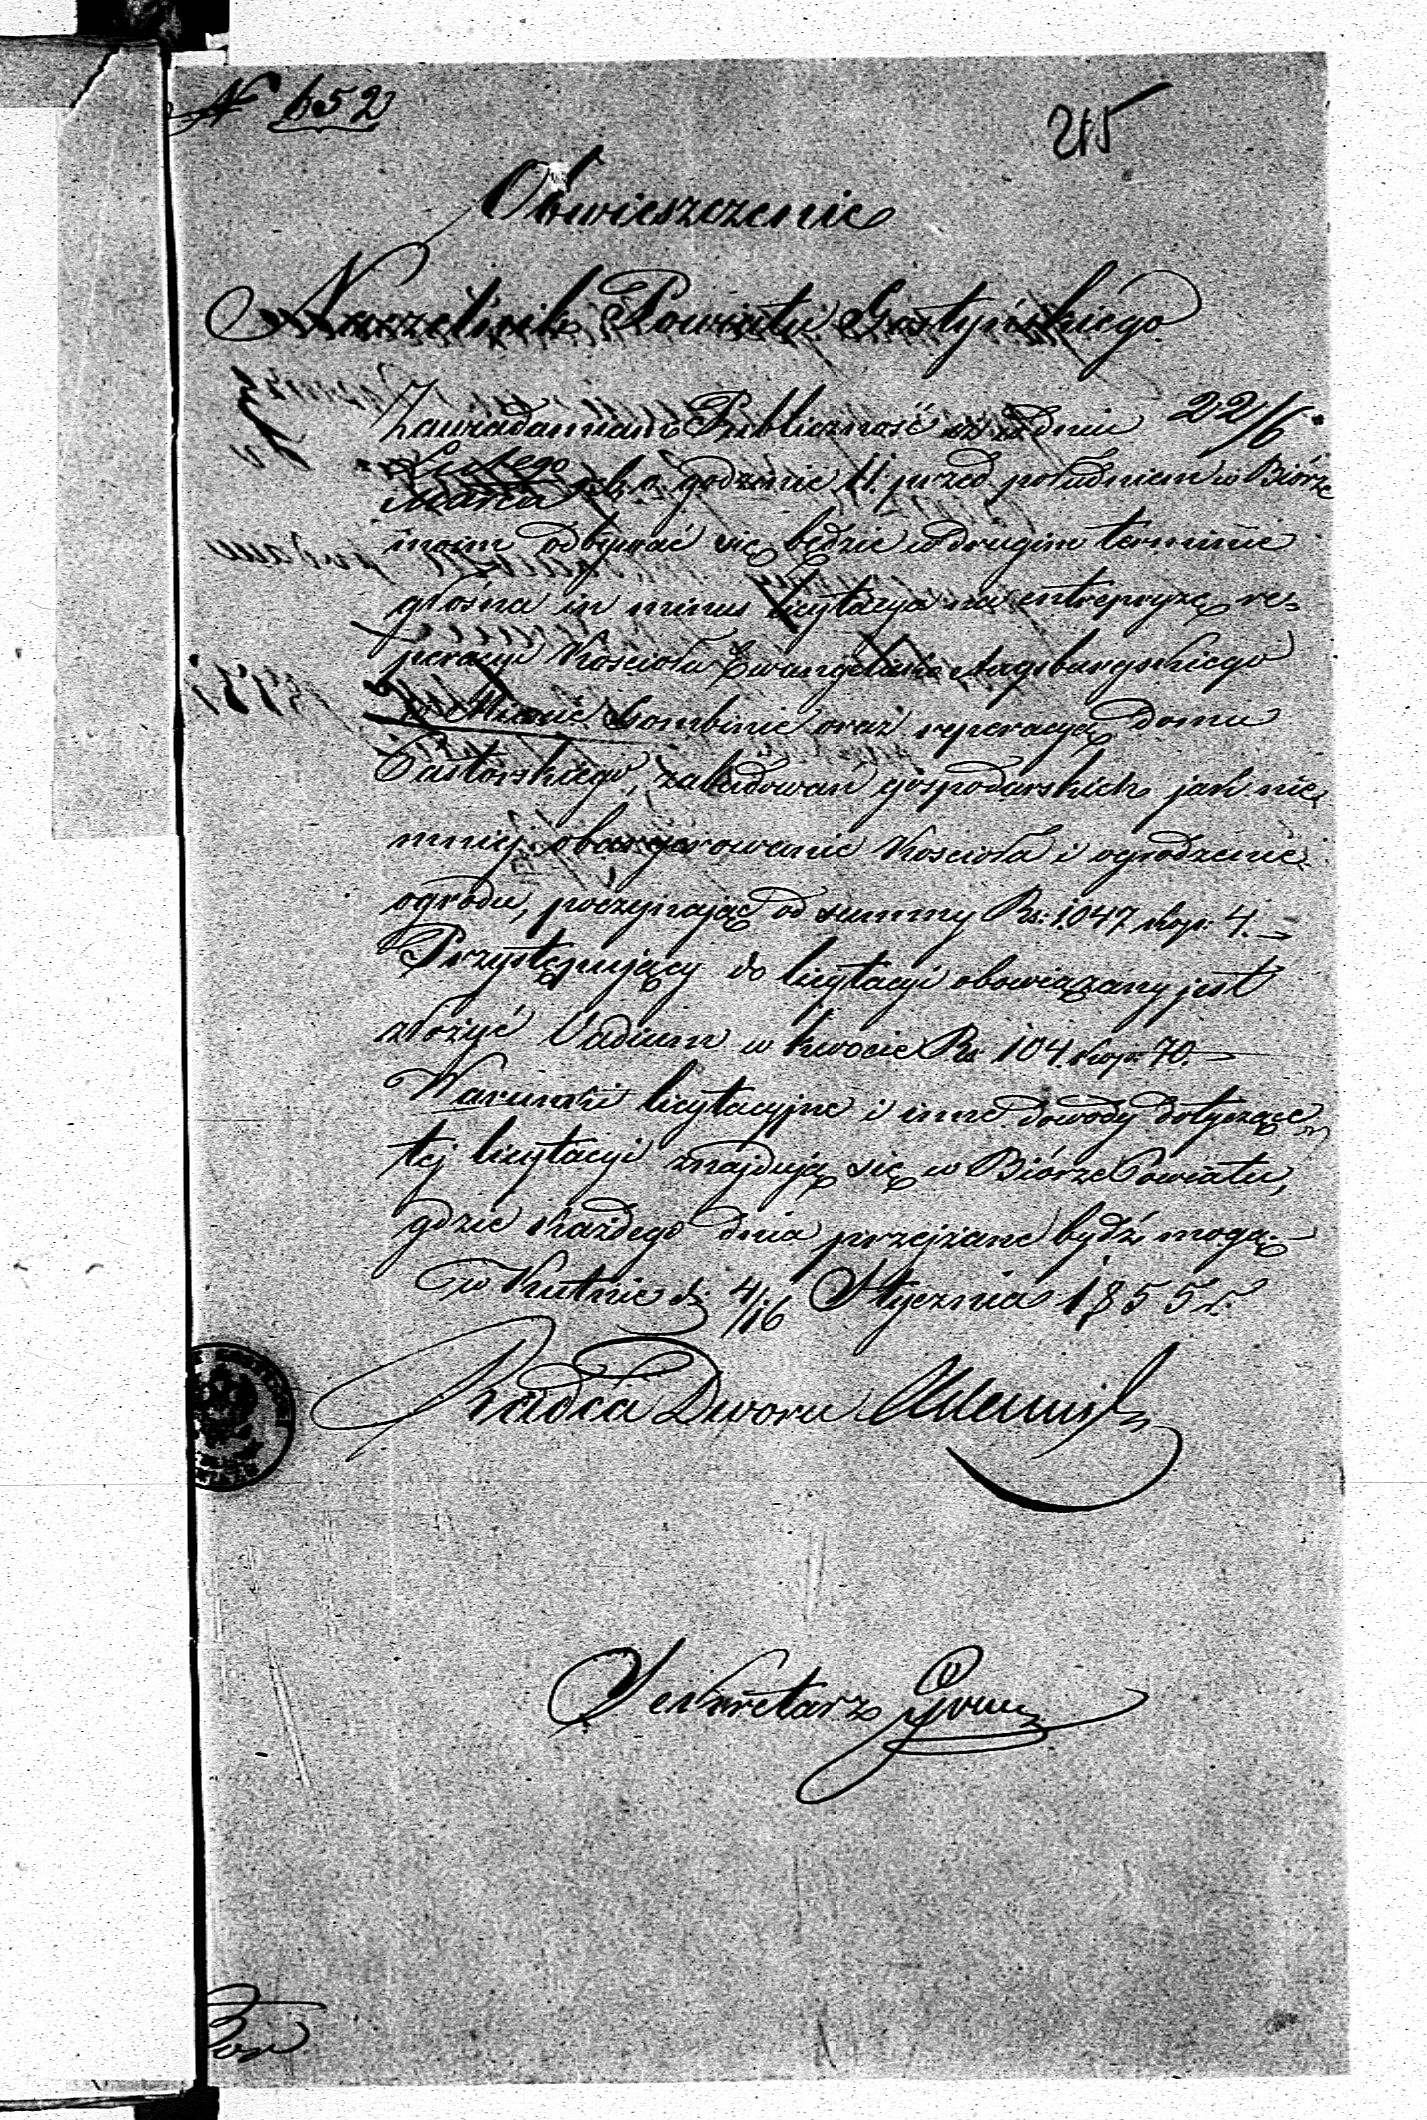 N 652
215
Obwieszczenie
Naczelnik Powiatu Gostyńskiego
Zawiadamiam Publiczność iż w dniu 22/6
Lutego
Marca r. b. o godzinie 11. przed południem w Biórze
moim odbywać się będzie w drugim terminie
głośna in minus licytacya na entrepryzę re-
peracyi Kościoła Ewangelicko Augsburgskiego
w Mieście Gombinie oraz reperacyą Domu
Pastorskiego, zabudowan gospodarskich jak nie
mniej obwarowanie Kościoła i ogrodzenie
ogrodu, poczynając od summy Rs. 1047 kop. 4.
Przystępujący do licytacyi obowiązany jest
złożyć Vadium w kwocie Rs 104. kop. 70.
Warunki licytacyjne i inne dowody dotyczące
tej licytacyi znajdują się w Biórze Powiatu,
gdzie każdego dnia przejżane bydź mogą.
w Kutnie d. 4/16 Stycznia 1855 r.
Radca Dworu
Sekretarz